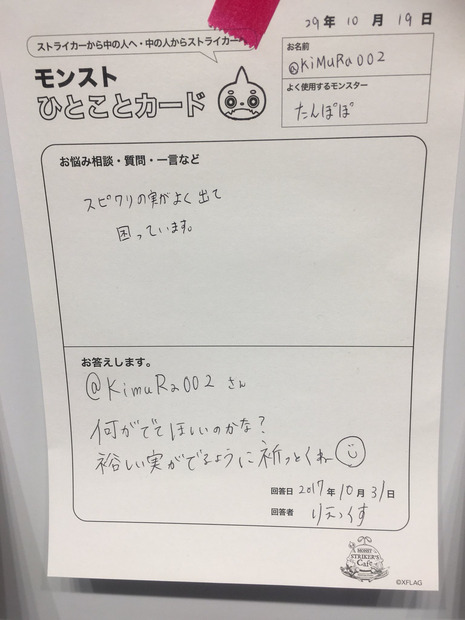 29年 10月 19日
ストライカーから中の人へ・中の人からストライカーへ
お名前
@KiMuRa002
モンスト
ひとことカード
よく使用するモンスター
たんぽぽ
お悩み相談・質問・一言など
スピワリの実がよく出て
困っています。
お答えします。
@KimuRa002 さん
何がでてほしいのかな?
裕しい実がでるように祈っとくね
回答日 2017年10月31日
回答者 りえっくす
MOBBY
STRIKER'S
Cafe
©XFLAG